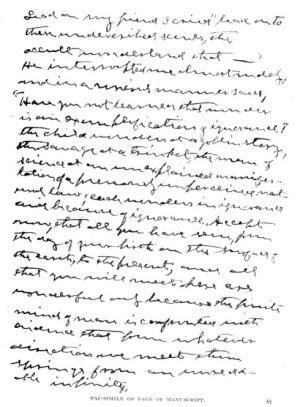 Lead on my friend I cried "lead on to
those undescribed scenes, the
occult wonderland that —"
He interrupted me almost rudely,
and in a serious manner said,
"Have you not learned that wonder
is an exemplification of ignorance?
The child wonders at a goblin story,
the savage at a trinket, the man of
science at an unexplained manifes-
tation of a previously unperceived nat-
ural law; each wonders in ignorance
and because of ignorance. Accept
now, that all you have seen, from
the day of your birth on the surface of
the earth, to the present, and all
that you will meet here are
wonderful only because the finite
mind of man is confronted with
evidence that from whatever
direction we meet them
springs from an unsee-
able infinity.
FAC-SIMILE OF PAGE OF MANUSCRIPT.